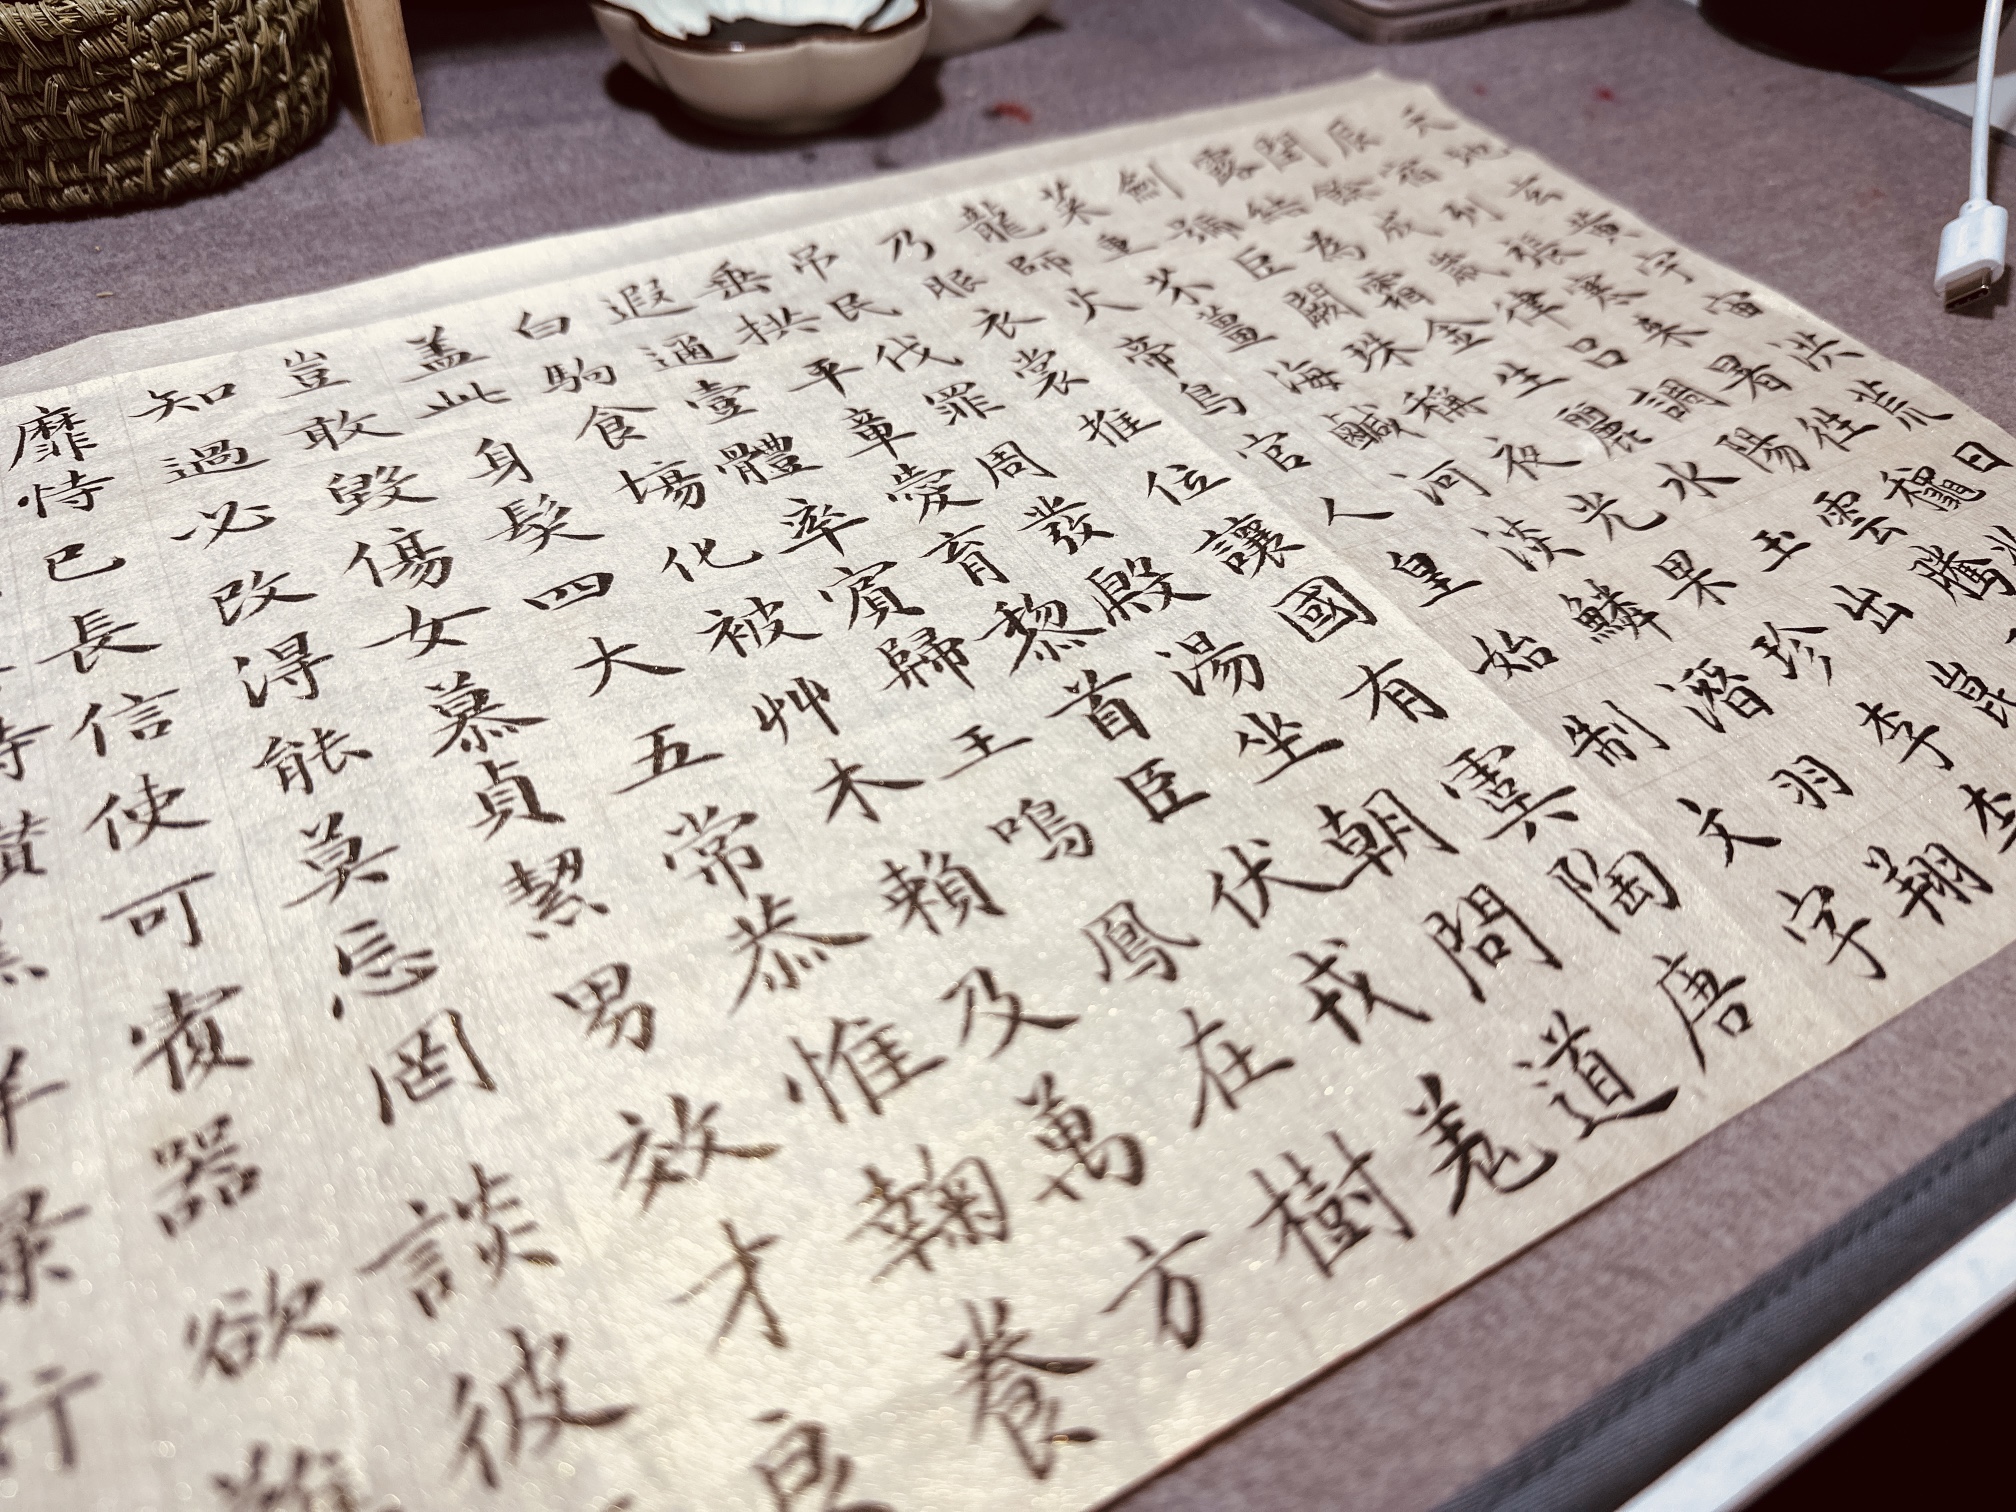 天地玄黃宇宙洪荒日
辰宿列張寒来暑往穐
閏餘成歲律呂調陽雲騰
露結為霜金生麗水玉出崑
劍號臣闕珠稱夜光果珍李柰
菜重芥薑海鹹河淡鱗潛羽翔
龍師火帝鳥官人皇始制文字
乃服衣裳推位讓國有虞陶唐
吊民伐罪周發殷湯坐朝問道
垂拱平章愛育黎首臣伏戎羌
遐邇壹體率賓歸王鳴鳳在樹
白駒食場化被艸木賴及萬方
盖此身髮四大五常恭惟鞠養
豈敢毀傷女慕貞絜男效才良
知過必改得能莫忘罔談彼
靡恃己長信使可覆器欲難
詩讚羔羊景行